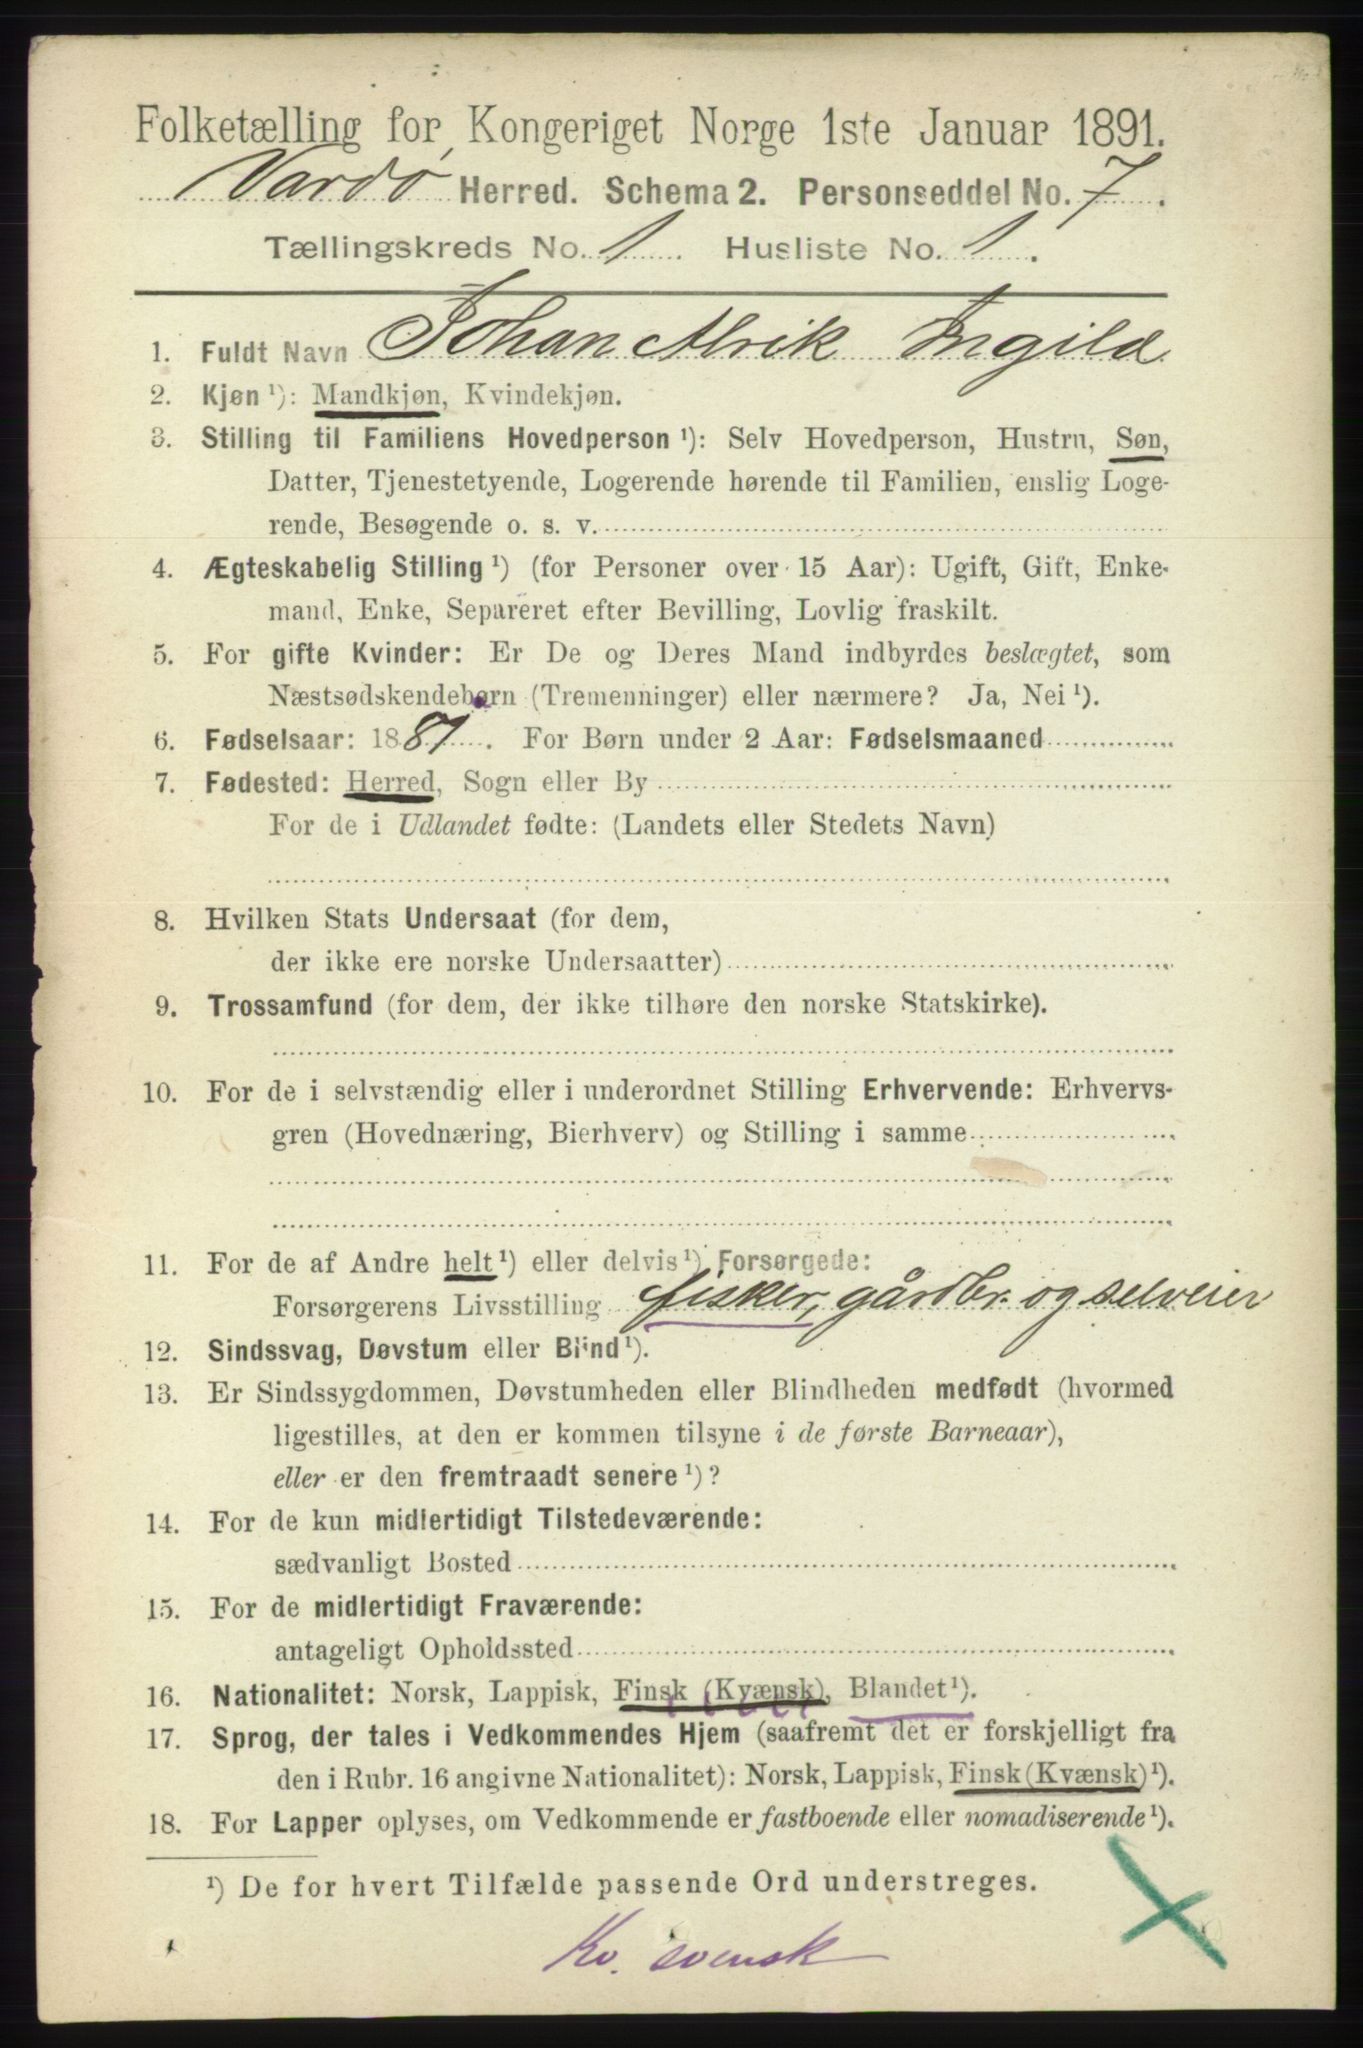 Folketælling for Kongeriget Norge 1ste Januar 1891.
Vardø Herred. Schema 2. Personseddel No. 7.
Tællingskreds No. 1 Husliste No. 1.
1. Fuldt Navn Johan Alrik Ingild
2. Kjøn ¹): Mandkjøn, Kvindekjøn.
3. Stilling til Familiens Hovedperson ¹): Selv Hovedperson, Hustru, Søn,
Datter, Tjenestetyende, Logerende hørende til Familien, enslig Loge-
rende, Besøgende o. s. v.
4. Ægteskabelig Stilling ¹) (for Personer over 15 Aar): Ugift, Gift, Enke-
mand, Enke, Separeret efter Bevilling, Lovlig fraskilt.
5. For gifte Kvinder: Er De og Deres Mand indbyrdes beslægtet, som
Næstsødskendebørn (Tremenninger) eller nærmere? Ja, Nei ¹).
6. Fødselsaar: 1887. For Børn under 2 Aar: Fødselsmaaned
7. Fødested: Herred, Sogn eller By
For de i Udlandet fødte: (Landets eller Stedets Navn)
8. Hvilken Stats Undersaat (for dem,
der ikke ere norske Undersaatter)
9. Trossamfund (for dem, der ikke tilhøre den norske Statskirke).
10. For de i selvstændig eller i underordnet Stilling Erhvervende: Erhvervs-
gren (Hovednæring, Bierhverv) og Stilling i samme
11. For de af Andre helt ¹) eller delvis ¹) Forsørgede:
Forsørgerens Livsstilling fisker, gårdbr. og selveier
12. Sindssvag, Døvstum eller Blind ¹).
13. Er Sindssygdommen, Døvstumheden eller Blindheden medfødt (hvormed
ligestilles, at den er kommen tilsyne i de første Barneaar),
eller er den fremtraadt senere ¹)?
14. For de kun midlertidigt Tilstedeværende:
sædvanligt Bosted
15. For de midlertidigt Fraværende:
antageligt Opholdssted
16. Nationalitet: Norsk, Lappisk, Finsk (Kvænsk), Blandet ¹).
17. Sprog, der tales i Vedkommendes Hjem (saafremt det er forskjelligt fra
den i Rubr. 16 angivne Nationalitet): Norsk, Lappisk, Finsk (Kvænsk) ¹).
18. For Lapper oplyses, om Vedkommende er fastboende eller nomadiserende ¹).
¹) De for hvert Tilfælde passende Ord understreges.
Kv. svensk